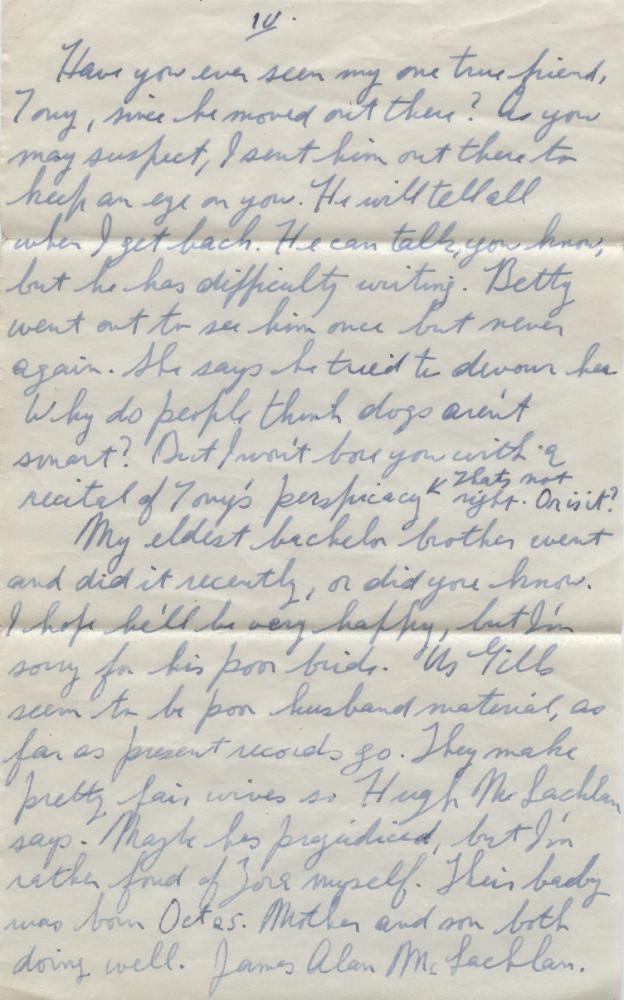 IV.
Have you ever seen my one true friend,
Tony, since he moved out there? As you
may suspect, I sent him out there to
keep an eye on you. He will tell all
when I get back. He can talk, you know,
but he has difficulty writing. Betty
went out to see him once but never
again. She says he tried to devour her
Why do people think dogs aren't
smart? But I won't bore you with a
recital of Tony's perspicacy < Thats not right. Or is it?
My eldest bachelor brother went
and did it recently, or did you know.
I hope he'll be very happy, but I'm
sorry for his poor bride. Us Gills
seem to be poor husband material, as
far as present records go. They make
pretty fair wives so Hugh McLachlan
says. Maybe hes prejudiced, but I'm
rather fond of Zora myself. Their baby
was born Oct 25. Mother and son both
doing well. James Alan McLachlan.